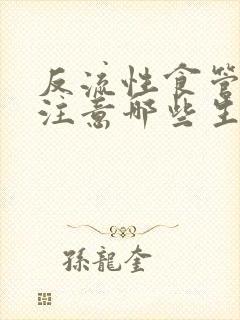 反流性食管
注意哪些生
孫龍奎